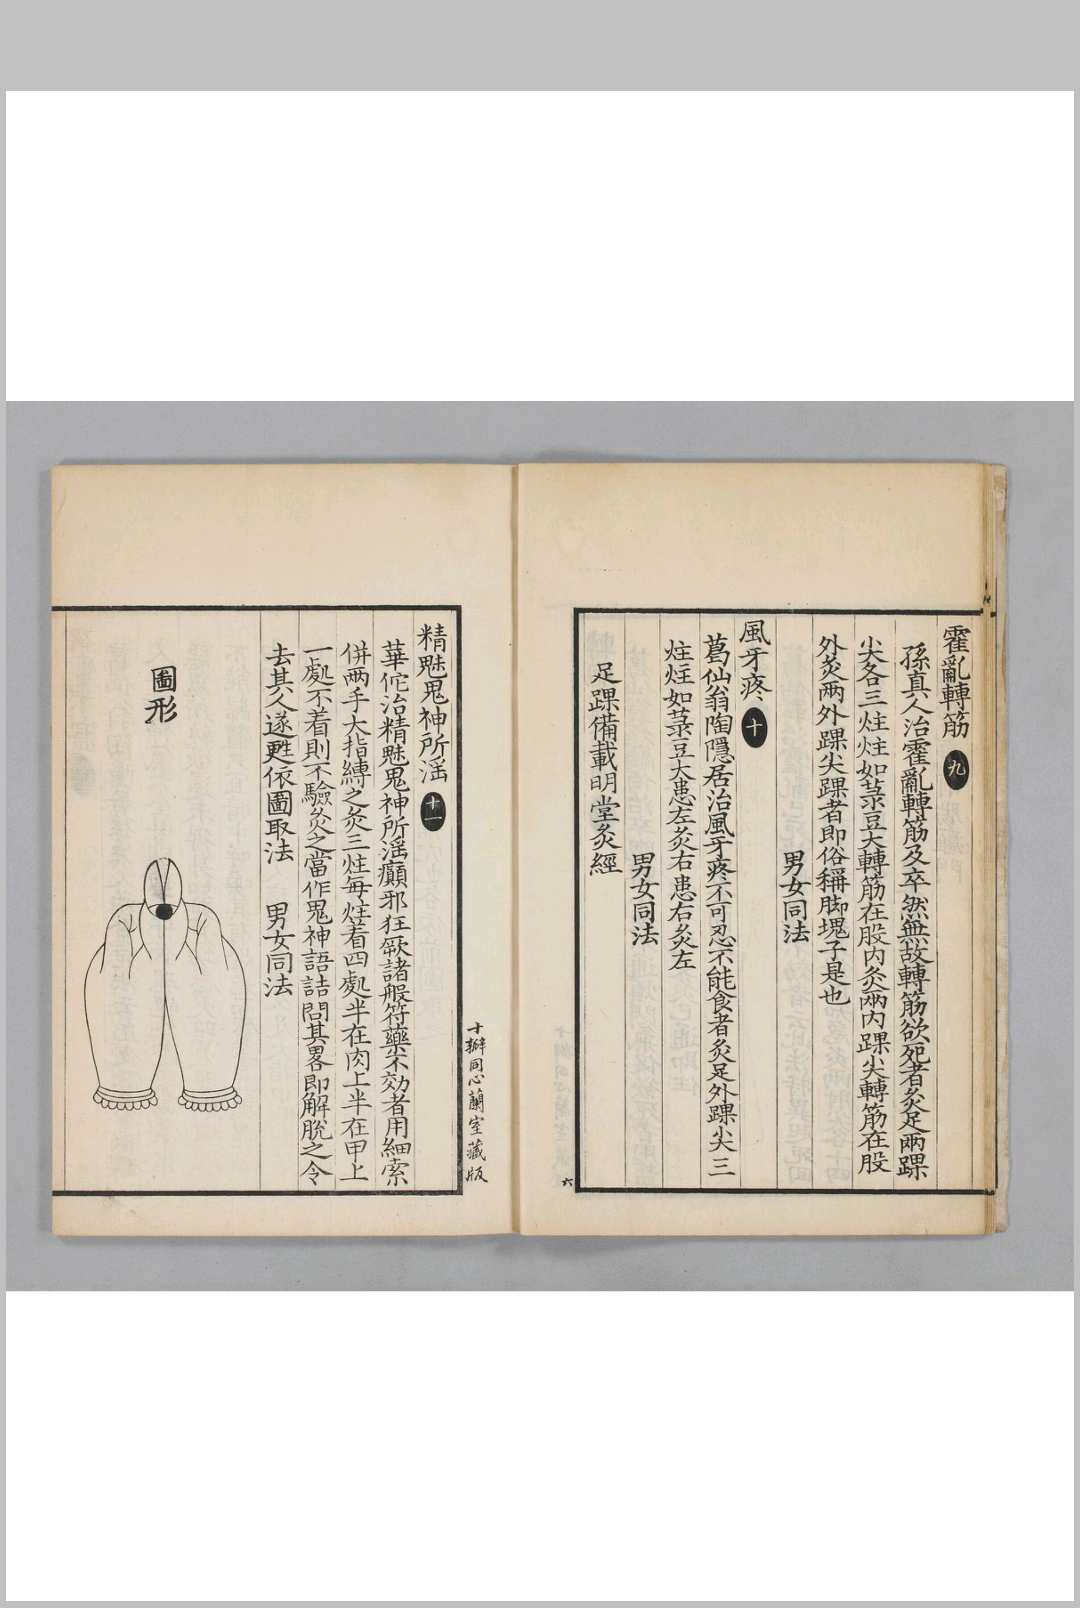 霍亂轉筋 九
孫真人治霍亂轉筋及卒然無故轉筋欲死者灸足兩踝
尖各三炷炷如菉豆大轉筋在股内灸兩内踝尖轉筋在股
外灸兩外踝尖踝者即俗稱脚塊子是也
男女同法
風牙疼 十
葛仙翁陶隱居治風牙疼不可忍不能食者灸足外踝尖三
炷炷如菉豆大患左灸右患右灸左
男女同法
足踝備載明堂灸經
六
十瓣同心蘭室藏版
精魅鬼神所滛 十一
華佗治精魅鬼神所滛癲邪狂厥諸般符藥不効者用細索
併两手大指縛之灸三炷每炷着四處半在肉上半在甲上
一處不着則不驗灸之當作鬼神語詰問其畧即解脱之令
去其人遂甦依圖取法 男女同法
圖形